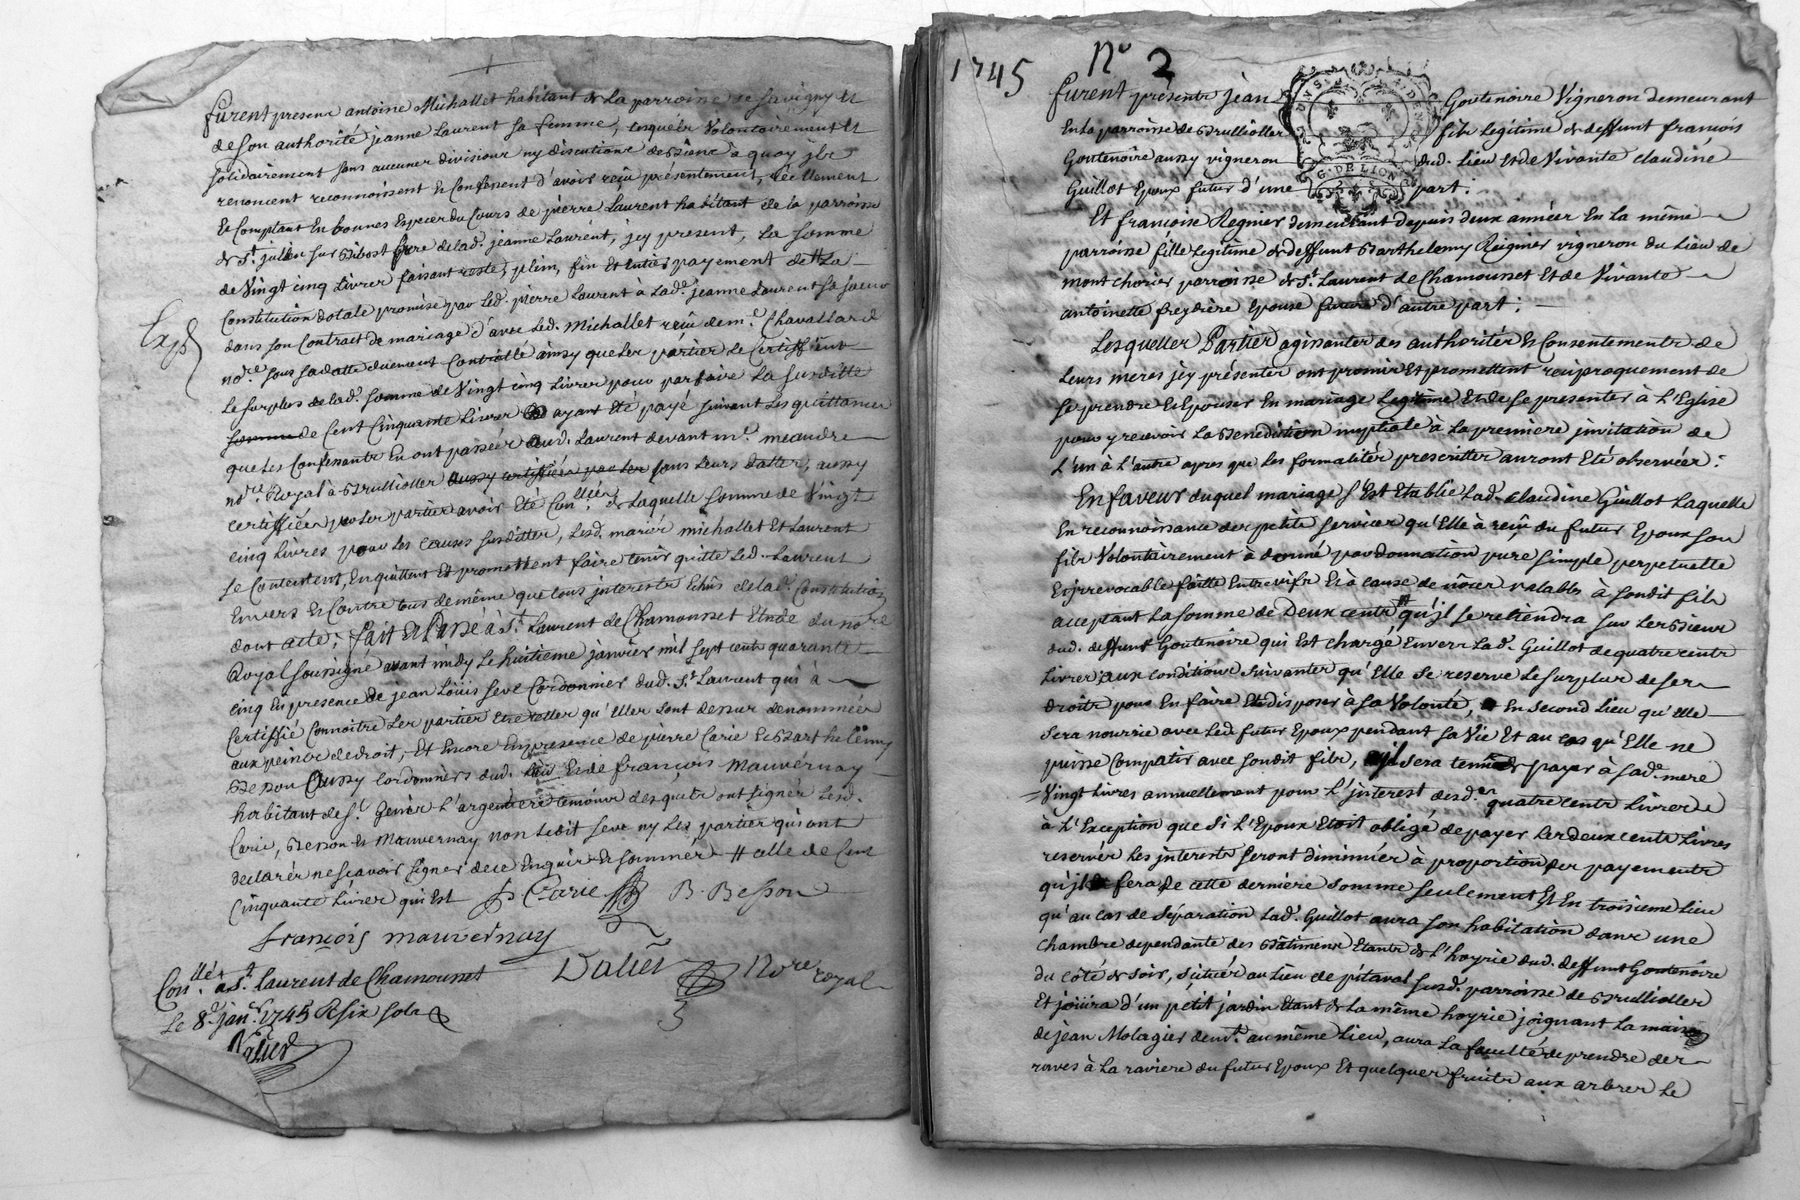 furent present antoine Michallet habitant de la parroisse de Savigny et
de son authorité jeanne Laurent sa femme, lesquels volontairement et
solidairement sans aucunes divisions ny discutions de biens à quoy jls
renoncent reconnoissent et confessent d'avoir reçu présentement, réellement
et comptant en bonnes especes du cours de pierre Laurent habitant de la parroisse
de St. julien sur Bibost frere de lad. jeanne Laurent, jcy present, la somme
de vingt cinq livres faisant reste, plein, fin et entier payement de la
constitution dotale promise par led. pierre Laurent à lad. jeanne Laurent sa soeur
dans son contrat de mariage d'avec led. Michallet reçu de me. Chavallard
nore. sous sa datte duement controllé ainsy que les parties le certiffient
le surplus de lad. somme de vingt cinq livres pour parfaire la susditte
somme de cent cinquante livres ayant été payé suivant les quittances
que les confessants en ont passées aud. Laurent devant me. meaudre
nore. Royal à Brullioles aussy certiffiées par les sans leurs dattes, aussy
certiffiées par les parties avoir été conllées. de laquelle somme de vingt
cinq livres pour les causes susdittes, lesd. mariés michallet et Laurent
se contentent, en quittent et promettent faire tenir quitte led. Laurent
envers et contre tous de même que tous interests échus de lad. constitution
dont acte; fait et passé à St. Laurent de Chamousset etude du nore
Royal soussigné avant midy le huitieme janvier mil sept cents quarante
cinq en presence de jean Louis seve cordonnier dud. St. Laurent qui à
certiffié connoitre les parties etre telles qu'elles sont dessus denommées
aux peines de droit, et encore en presence de pierre Carie et Barthelemy
Besson aussy cordonniers dud. lieu et de françois Mauvernay
habitant de St. Genis l'argentiere temoins desquels ont signés lesd.
Carie, Besson et Mauvernay non ledit seve ny les parties qui ont
declarés ne scavoir signer de ce enquis et sommés # celle de cent
cinquante livres qui est P Carie B. Besson
françois mauvernay
Dalier Nore royal
Conllé. à St. laurent de Chamousset
Le 8e. janr. 1745 R six sols
Dalier
Exp
1745 No 2
furent présents jean Goutenoire Vigneron demeurant
en la parroisse de Brullioles fils legitime de deffunt francois
Goutenoire aussy vigneron dud. lieu et de vivante claudine
Guillot Epoux futur d'une part;
G. DE LION
Et francoise Regnier demeurant depuis deux années en la même
parroisse fille legitime de deffunt Barthelemy Reignier vigneron du lieu de
mont chorier parroisse de St. Laurent de Chamousset et de vivante
antoinette freydiere Epouse future d'autre part;
Lesquelles Parties agissantes des authorités et consentements de
leurs meres jcy présentes ont promis et promettent reciproquement de
se prendre et Epouser en mariage legitime et de se presenter à l'Eglise
pour y recevoir la Benediction nuptiale à la premiere jnvitation de
l'un à l'autre apres que les formalités prescrittes auront eté observées;
En faveur duquel mariage s'est etablie lad. claudine Guillot laquelle
en reconnoissance des petits services qu'elle à reçu du futur Epoux son
fils volontairement à donné par donnation pure simple perpetuelle
et jrrevocable faitte entre vifs et à cause de nôces valables à sondit fils
acceptant la somme de Deux cents # qu'jl se retiendra sur les Biens
dud. deffunt Goutenoire qui est chargé envers lad. Guillot de quatre cents
livres aux conditions suivantes qu'elle se reserve le surplus de ses
droits pour en faire et disposer à sa volonté, en second lieu qu'elle
sera nourrie avec led. futur Epoux pendant sa vie et au cas qu'elle ne
puisse compatir avec sondit fils, jl sera tenu de payer à sad. mere
vingt livres annuellement pour l'jnterest desd. quatre cents livres
à l'exception que si l'Epoux etoit obligé de payer les deux cents livres
reservés les interests seront diminués à proportion des payements
qu'jl fera de cette derniere somme seulement, et en troisieme lieu
qu'au cas de séparation lad. Guillot aura son habitation dans une
chambre dependante des Bâtiments etants de l'hoyrie dud. deffunt Goutenoire
du côté de soir, située au lieu de pitaval susd. parroisse de Brullioles
et joüira d'un petit jardin etant de la même hoyrie joignant la maison
de jean Molagier deurt. au même lieu, aura la faculté de prendre des
raves à la raviere du futur Epoux et quelques fruits aux arbres le